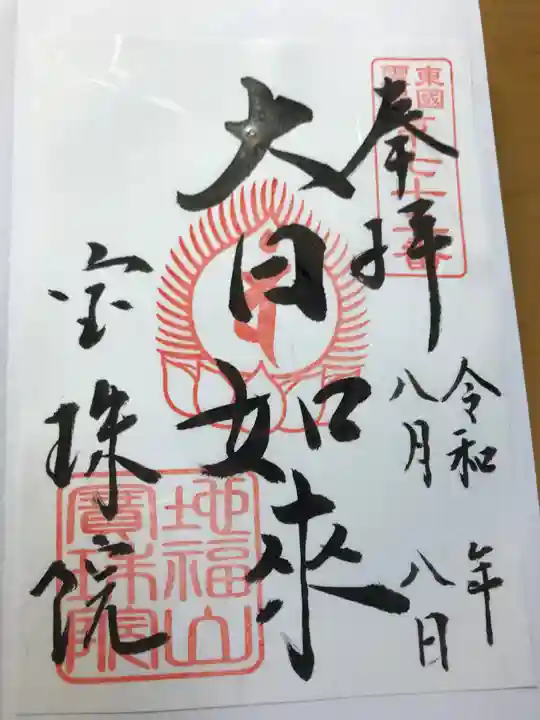 東國
奉拝
令和 年
八月八日
大日如來
宝珠院
地福山
寶珠院